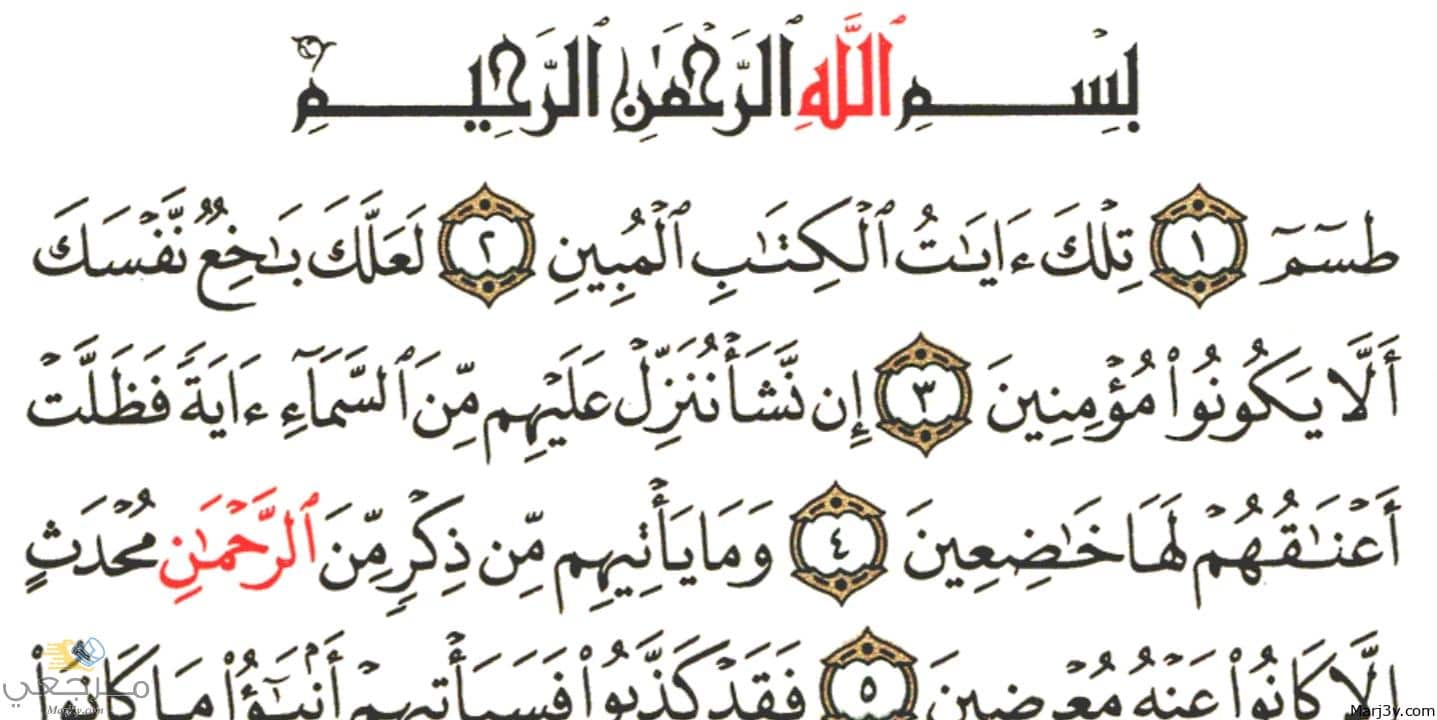 بِسْمِ ٱللَّهِ ٱلرَّحْمَٰنِ ٱلرَّحِيمِ
طسٓمٓ ١ تِلْكَ ءَايَٰتُ ٱلْكِتَٰبِ ٱلْمُبِينِ ٢ لَعَلَّكَ بَٰخِعٌ نَّفْسَكَ
أَلَّا يَكُونُوا۟ مُؤْمِنِينَ ٣ إِن نَّشَأْ نُنَزِّلْ عَلَيْهِم مِّنَ ٱلسَّمَآءِ ءَايَةً فَظَلَّتْ
أَعْنَٰقُهُمْ لَهَا خَٰضِعِينَ ٤ وَمَا يَأْتِيهِم مِّن ذِكْرٍ مِّنَ ٱلرَّحْمَٰنِ مُحْدَثٍ
إِلَّا كَانُوا۟ عَنْهُ مُعْرِضِينَ ٥ فَقَدْ كَذَّبُوا۟ فَسَيَأْتِيهِمْ أَنۢبَٰٓؤُا۟ مَا كَانُوا۟
مرجعي
Marj3y.com
Marj3y.com